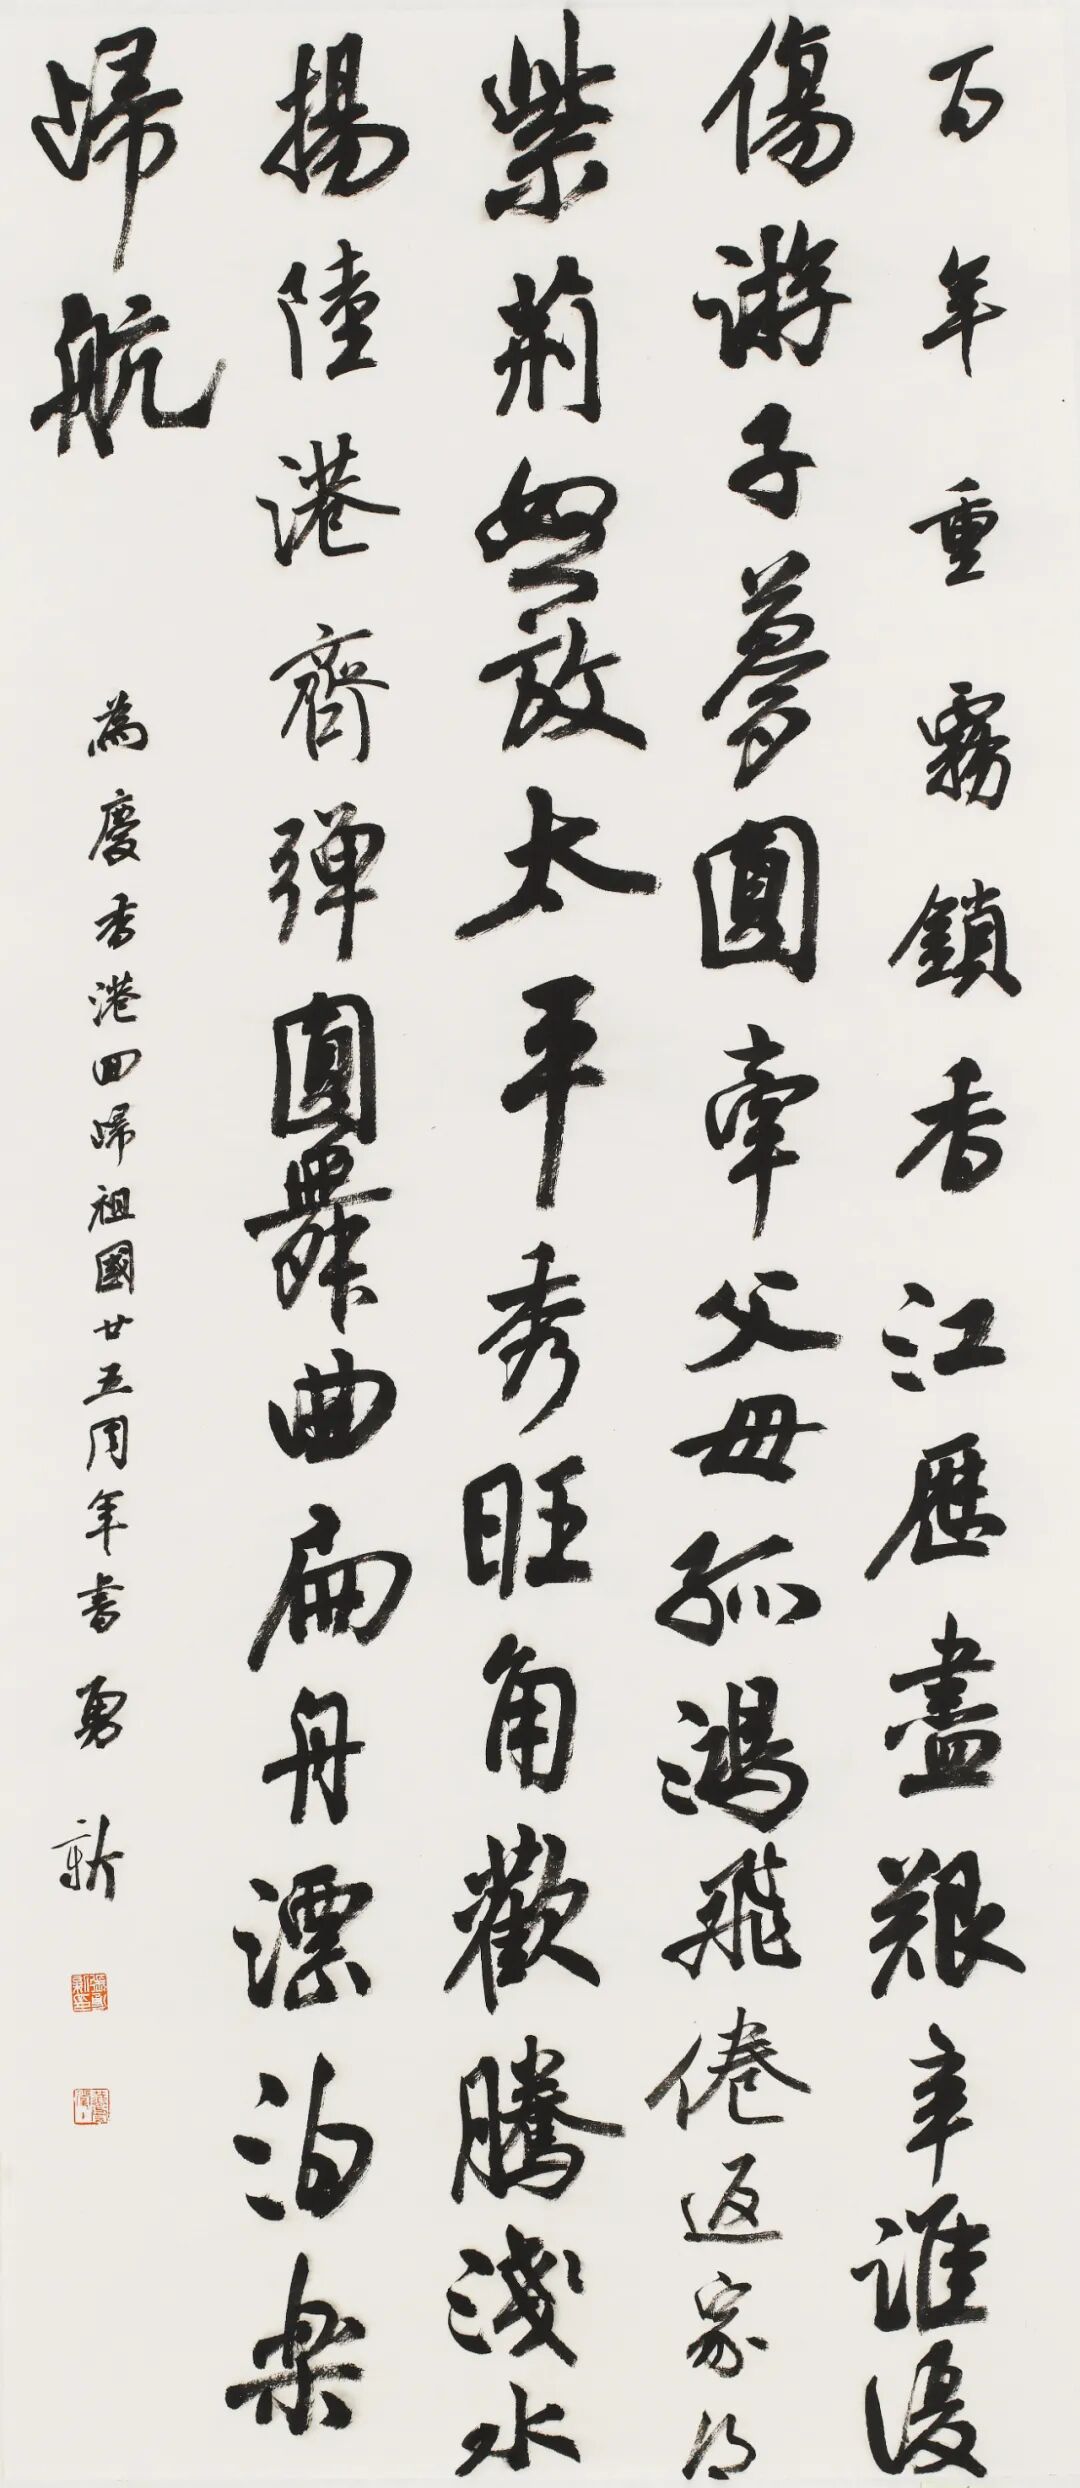 百年重霧鎖香江歷盡艱辛誰復
傷游子夢圓牽父母孤鴻飛倦返家鄉
紫荊怒放太平秀旺角歡騰淺水
揚陸港齊弹圓舞曲扁舟漂泊樂
歸航
為慶香港回歸祖國廿五周年書勇新